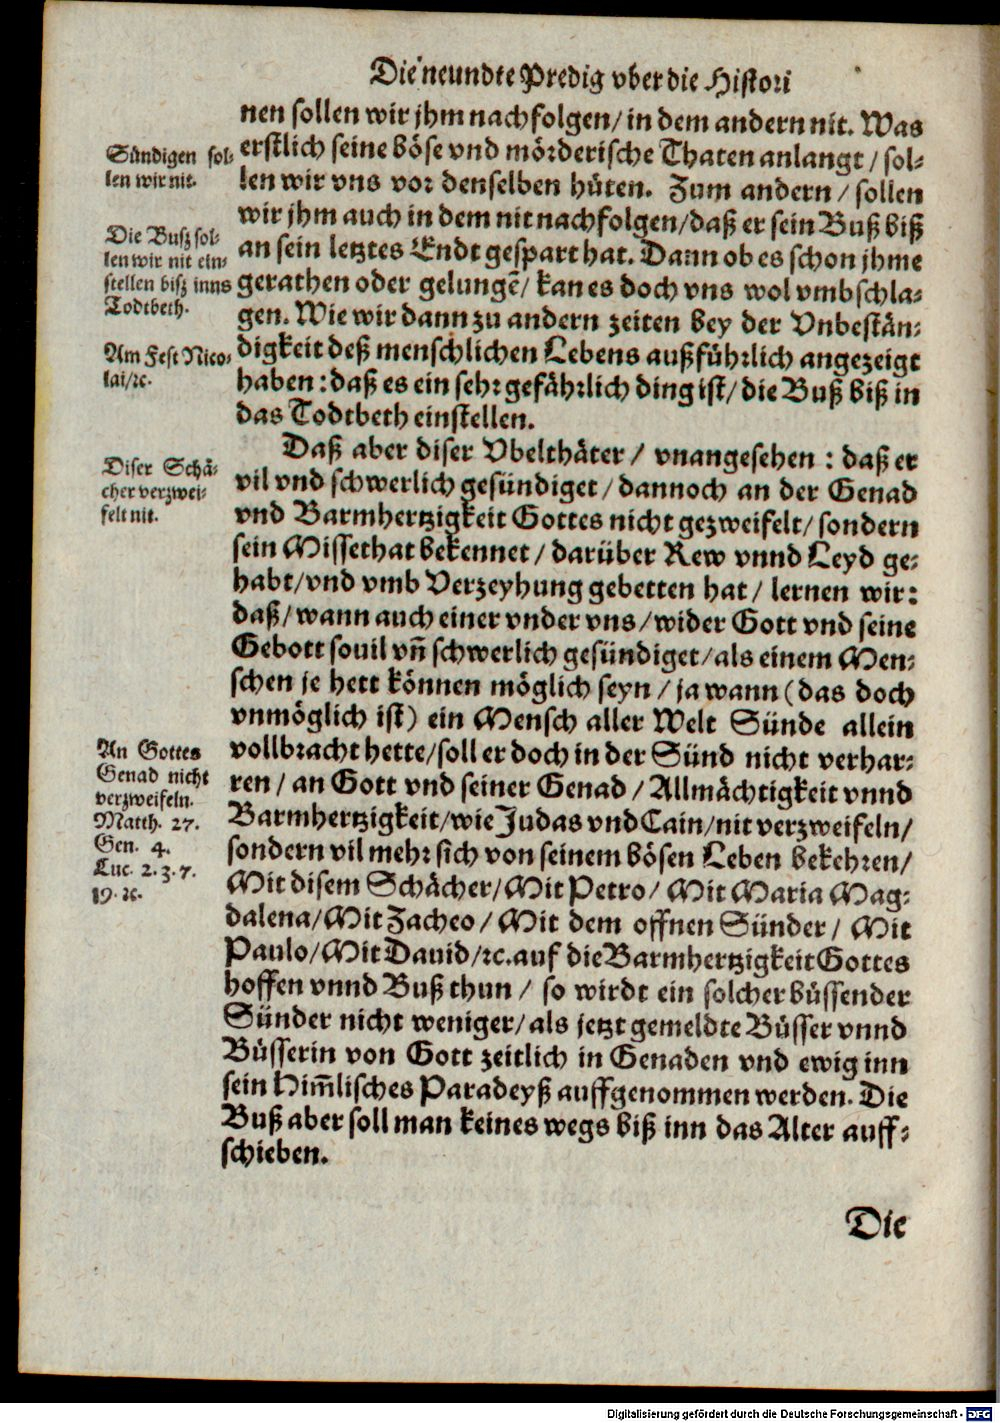 Die neundte Predig vber die Histori
nen sollen wir jhm nachfolgen/ in dem andern nit. Was
erstlich seine böse vnd mörderische Thaten anlangt/ sol-
len wir vns vor denselben hüten. Zum andern/ sollen
wir jhm auch in dem nit nachfolgen/ daß er sein Buß biß
an sein letztes Endt gespart hat. Dann ob es schon jhme
gerathen oder gelungē/ kan es doch vns wol vmbschla-
gen. Wie wir dann zu andern zeiten bey der Vnbestän-
digkeit deß menschlichen Lebens außführlich angezeigt
haben: daß es ein sehr gefährlich ding ist/ die Buß biß in
das Todtbeth einstellen.
Sündigen sol-
len wir nit.
Die Busz sol-
len wir nit ein-
stellen bisz inns
Todtbeth.
Am Fest Nico-
lai/ꝛc.
Daß aber diser Vbelthäter/ vnangesehen: daß er
vil vnd schwerlich gesündiget/ dannoch an der Genad
vnd Barmhertzigkeit Gottes nicht gezweifelt/ sondern
sein Missethat bekennet/ darüber Rew vnnd Leyd ge-
habt/ vnd vmb Verzeyhung gebetten hat/ lernen wir:
daß/ wann auch einer vnder vns/ wider Gott vnd seine
Gebott souil vñ schwerlich gesündiget/ als einem Men-
schen je hett können möglich seyn/ ja wann (das doch
vnmöglich ist) ein Mensch aller Welt Sünde allein
vollbracht hette/ soll er doch in der Sünd nicht verhar-
ren/ an Gott vnd seiner Genad/ Allmächtigkeit vnnd
Barmhertzigkeit/ wie Judas vnd Cain/ nit verzweifeln/
sondern vil mehr sich von seinem bösen Leben bekehren/
Mit disem Schächer/ Mit Petro/ Mit Maria Mag-
dalena/ Mit Zacheo/ Mit dem offnen Sünder/ Mit
Paulo/ Mit Dauid/ꝛc. auf die Barmhertzigkeit Gottes
hoffen vnnd Buß thun/ so wirdt ein solcher büssender
Sünder nicht weniger/ als jetzt gemeldte Büsser vnnd
Büsserin von Gott zeitlich in Genaden vnd ewig inn
sein Him̃lisches Paradeyß auffgenommen werden. Die
Buß aber soll man keines wegs biß inn das Alter auff-
schieben.
Diser Schä-
cher verzwei-
felt nit.
An Gottes
Genad nicht
verzweifeln.
Matth. 27.
Gen. 4.
Luc. 2. 3. 7.
19. ꝛc.
Die
Digitalisierung gefördert durch die Deutsche Forschungsgemeinschaft - DFG